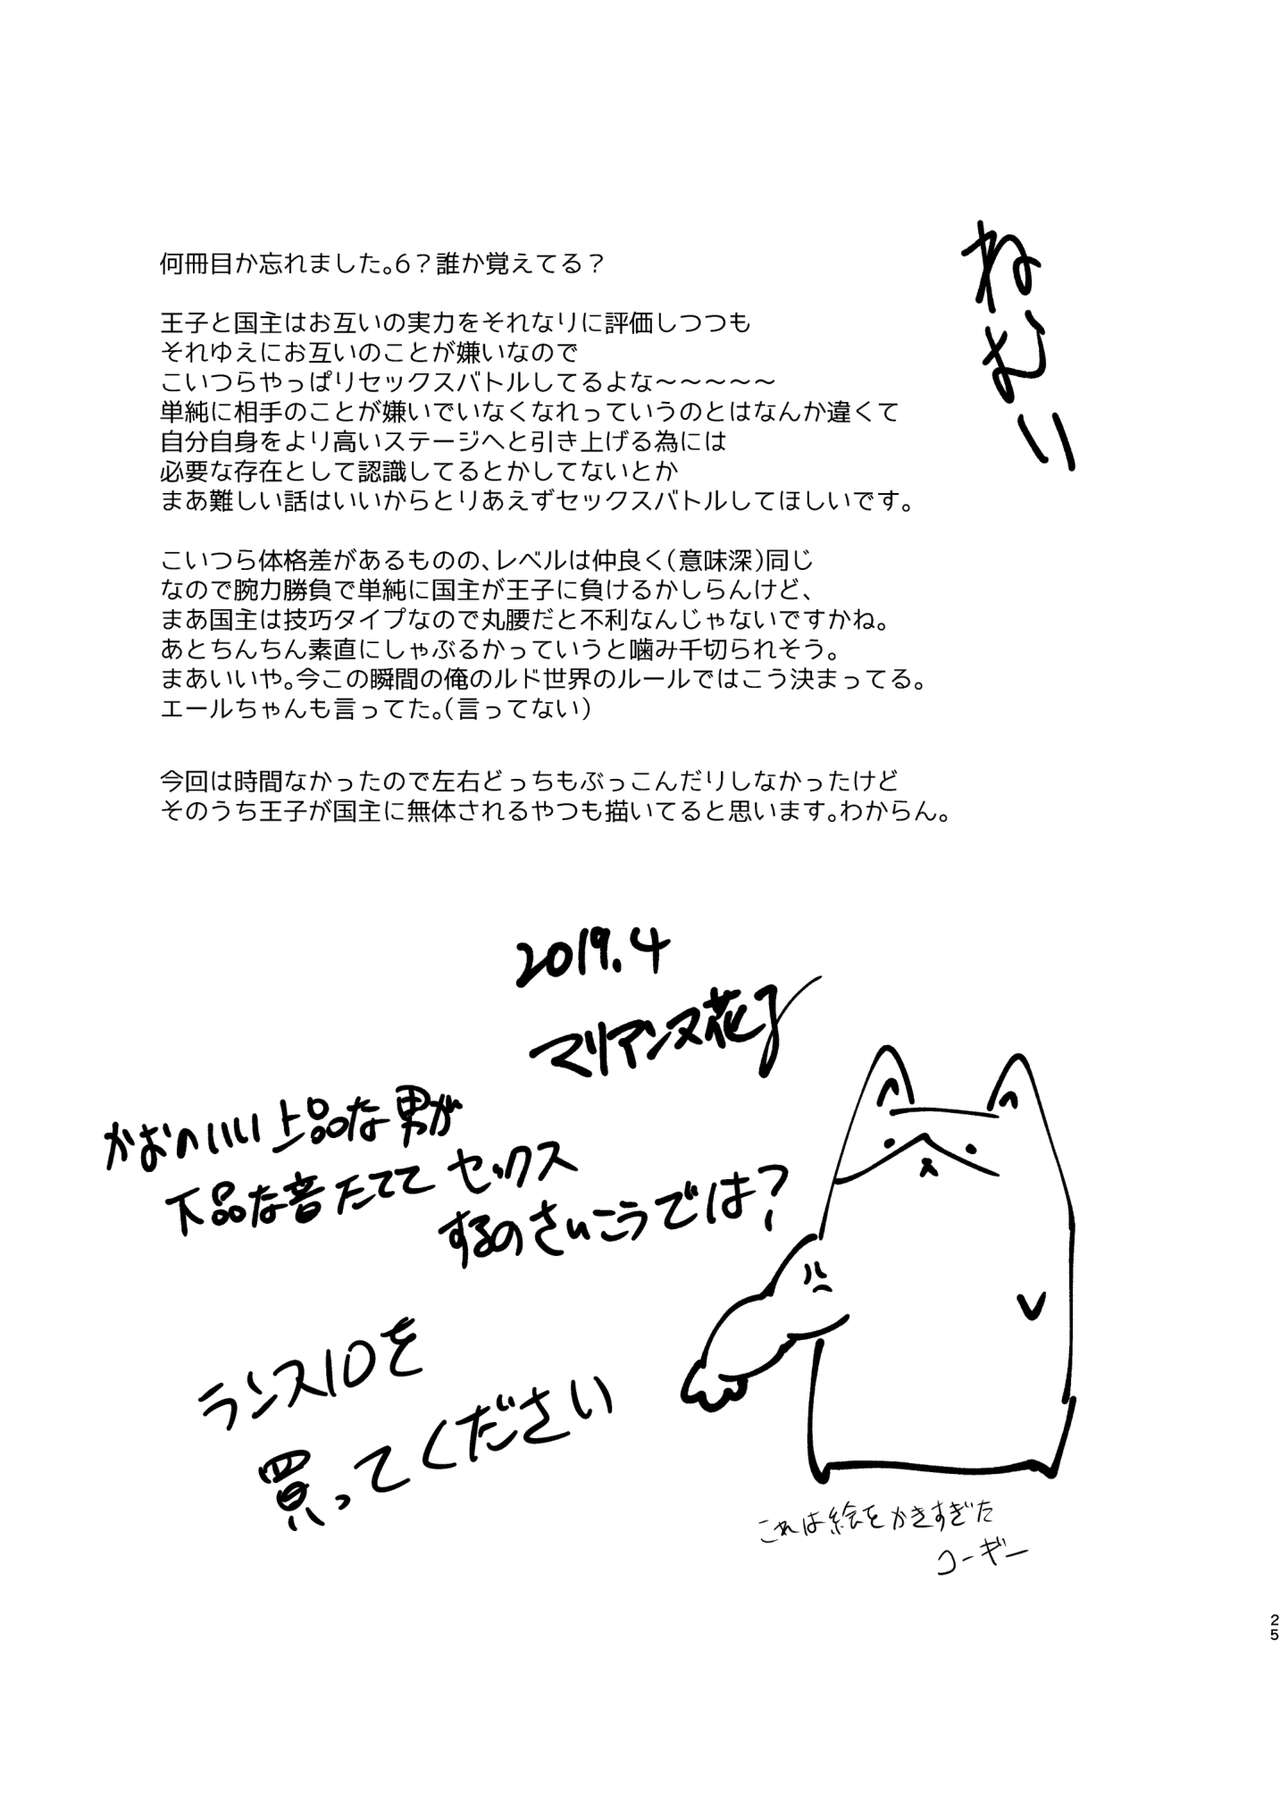 ねむい
何冊目か忘れました。6？誰か覚えてる？
王子と国主はお互いの実力をそれなりに評価しつつも
それゆえにお互いのことが嫌いなので
こいつらやっぱりセックスバトルしてるよな～～～～～
単純に相手のことが嫌いでいなくなれっていうのとはなんか違くて
自分自身をより高いステージへと引き上げる為には
必要な存在として認識してるとかしてないとか
まあ難しい話はいいからとりあえずセックスバトルしてほしいです。
こいつら体格差があるものの、レベルは仲良く（意味深）同じ
なので腕力勝負で単純に国主が王子に負けるかしらんけど、
まあ国主は技巧タイプなので丸腰だと不利なんじゃないですかね。
あとちんちん素直にしゃぶるかっていうと噛み千切られそう。
まあいいや。今この瞬間の俺のルド世界のルールではこう決まってる。
エールちゃんも言ってた。（言ってない）
今回は時間なかったので左右どっちもぶっこんだりしなかったけど
そのうち王子が国主に無体されるやつも描いてると思います。わからん。
2019.4
マリアンヌ花子
かおのいい上品な男が
下品な音たててセックス
するのさいこうでは？
ランス10を
買ってください
これは絵をかきすぎた
コーギー
25